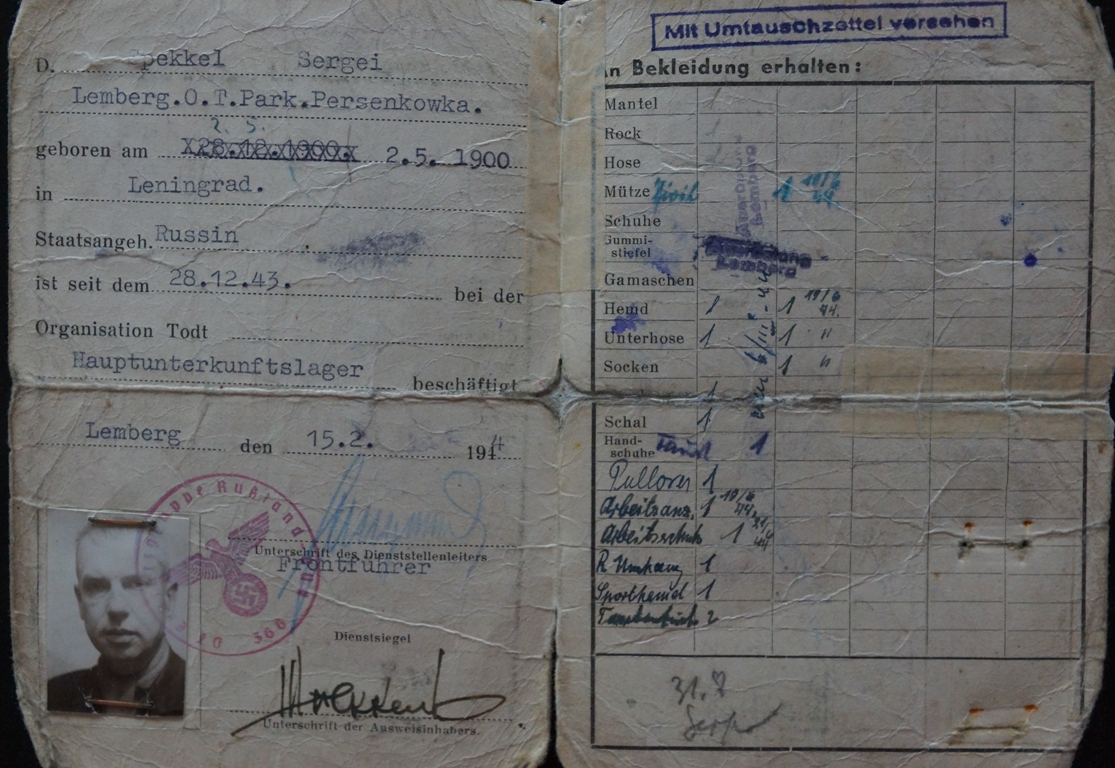 D. Spekkel Sergei
Lemberg.O.T.Park.Persenkowka.
2. 5.
geboren am X28.12.1900.X 2.5. 1900
in Leningrad.
Staatsangeh. Russin
ist seit dem 28.12.43. bei der
Organisation Todt
Hauptunterkunftslager beschäftigt
Lemberg den 15.2. 1944
Unterschrift des Dienststellenleiters
Frontführer
Dienstsiegel
Unterschrift der Ausweisinhabers.
Rußland
360
Mit Umtauschzettel versehen
An Bekleidung erhalten:
Mantel
Rock
Hose
Mütze Zivil 1 19/6 44.
Schuhe
Gummi-
stiefel
Lemberg
Gamaschen
Hemd 1 1 19/6 44.
Unterhose 1 1 "
Socken 1 "
1
Schal 1
Hand-
schuhe Faust 1
Pullover 1
Arbeitsanz. 1 19/6 44.
Arbeitsschuh 1
R Umhang 1
Sporthemd 1
Taschentuch 2
31.8